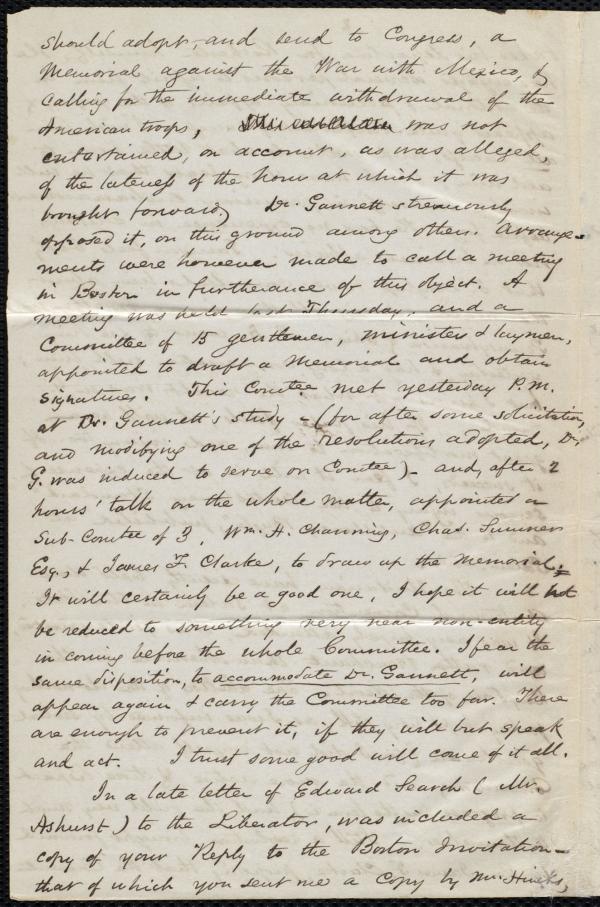 should adopt, and send to Congress, a
Memorial against the War with Mexico, &
calling for the immediate withdrawal of the
American troops, was not
entertained, on account, as was alleged,
of the lateness of the hour at which it was
brought forward.) Dr. Gannett strenuously
opposed it, on this ground among others. Arrange-
ments were however made to call a meeting
in Boston in furtherance of this object. A
meeting was held last Thursday, and a
Committee of 15 gentlemen, ministers & laymen,
appointed to draft a Memorial and obtain
signatures. This Comtee met yesterday P.M.
at Dr. Gannett's study - (for after some solicitation,
and modifying one of the resolutions adopted, Dr.
G. was induced to serve on Comtee) - and, after 2
hours' talk on the whole matter, appointed a
Sub-Comtee of 3, Wm. H. Channing, Chas. Sumner
Esq., & James F. Clarke, to draw up the Memorial.
It will certainly be a good one, I hope it will not
be reduced to something very near non-entity
in coming before the whole Committee. I fear the
same disposition, to accommodate Dr. Gannett, will
appear again & carry the Committee too far. There
are enough to prevent it, if they will but speak
and act. I trust some good will come of it all.
In a late letter of Edward Search (Mr.
Ashurst) to the Liberator, was included a
copy of your Reply to the Boston Invitation -
that of which you sent me a copy by Mr. Hincks,